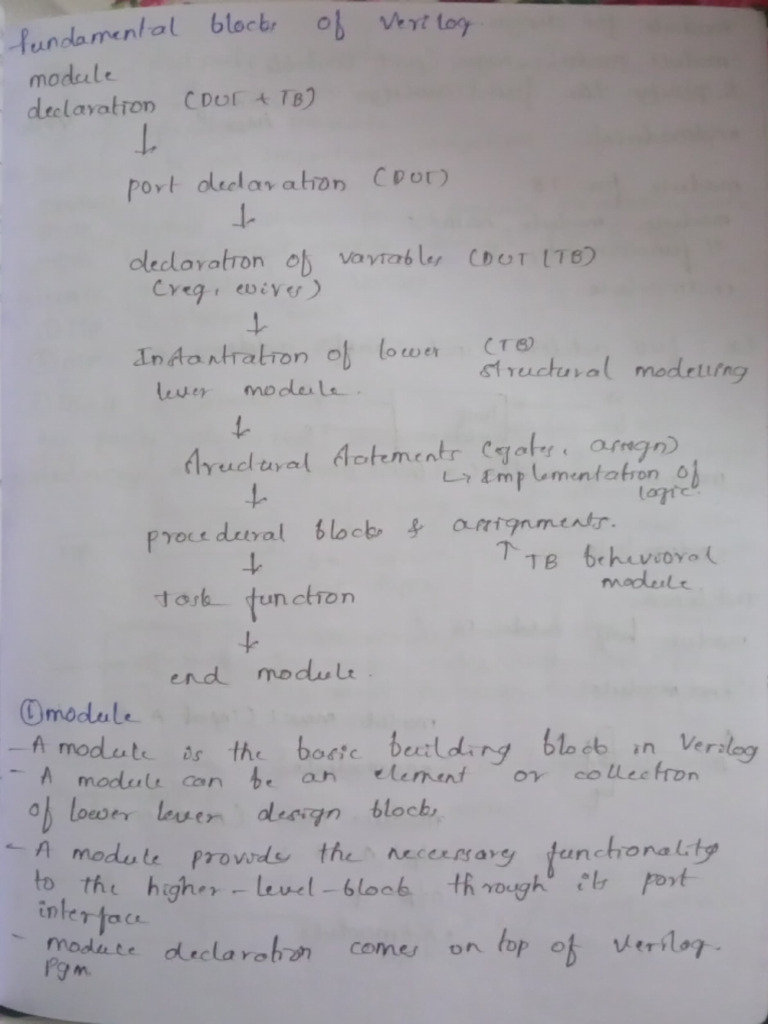 fundamental blocks of Verilog.
module
declaration (DUT + TB)
↓
port declaration (DUT)
↓
declaration of variables (DUT | TB)
(reg, wires)
↓
Instantiation of lower (TB)
structural modelling
lever module.
↓
structural statements (gates, assign)
↳ Implementation of
logic.
↓
procedural blocks & assignments.
↑ TB behavioral
module.
↓
Task function
↓
end module.
① module
- A module is the basic building block in Verilog
- A module can be an element or collection
of lower lever design blocks
- A module provide the necessary functionality
to the higher-level-block through its port
interface
- module declaration comes on top of Verilog.
pgm